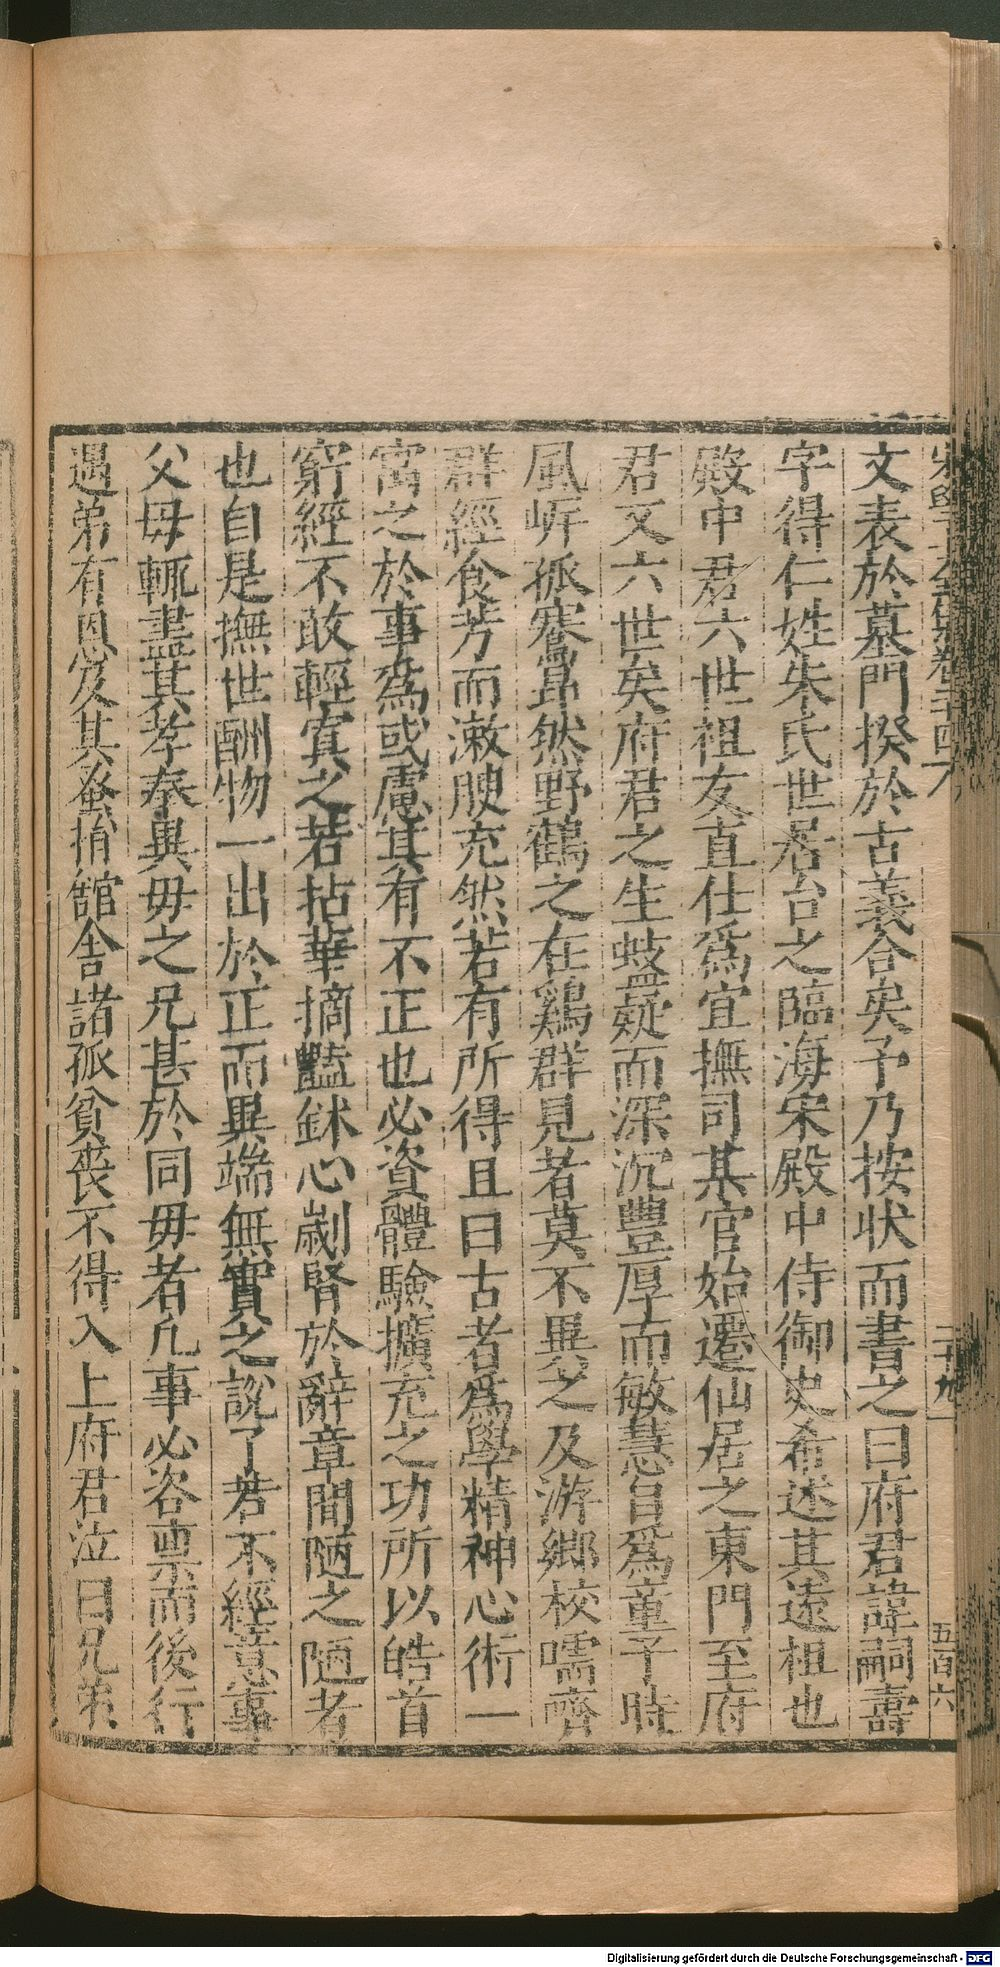 宋學士全集卷二十四 二十九 五百六
文表於墓門揆於古義合矣予乃按狀而書之曰府君諱嗣壽
字得仁姓朱氏世居台之臨海宋殿中侍御史希述其遠祖也
殿中君六世祖友直仕爲宜撫司某官始遷仙居之東門至府
君又六世矣府君之生蚑嶷而深沉豐厚而敏慧自爲童子時
風岸孤騫昂然野鶴之在鷄群見者莫不異之及游鄉校嚅嚌
群經食芳而漱腴充然若有所得且曰古者爲學精神心術一
寓之於事爲或慮其有不正也必資體驗擴充之功所以皓首
窮經不敢輕寘之若拈華摘豔鉥心劌腎於辭章間陋之陋者
也自是撫世酬物一出於正而異端無實之說了若不經意事
父毋輒盡其孝奉異毋之兄甚於同毋者凢事必咨禀而後行
遇弟有恩笈其蚤捐舘舍諸孤貧喪不得入上府君泣曰兄弟
Digitalisierung gefördert durch die Deutsche Forschungsgemeinschaft - DFG